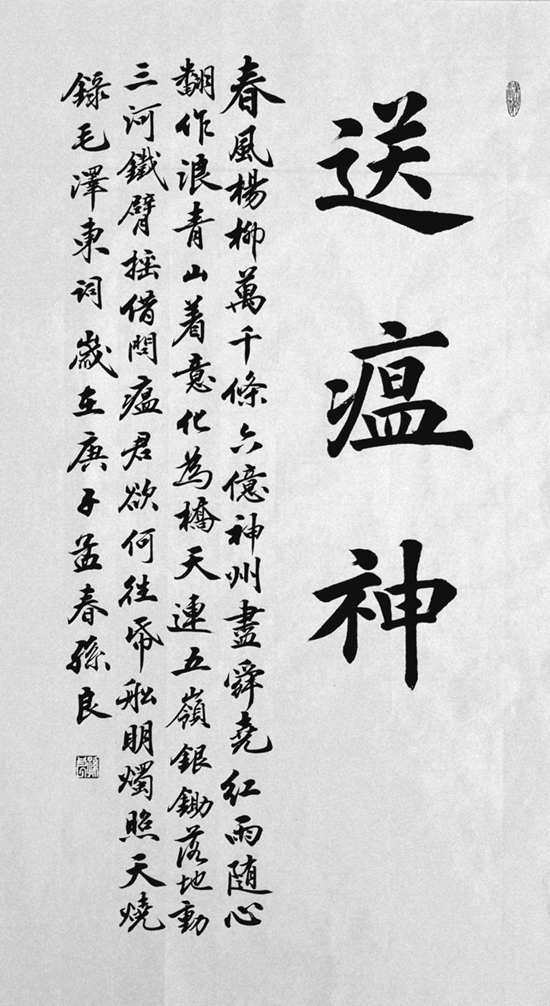 送瘟神
春風楊柳萬千條六億神州盡舜堯紅雨随心
翻作浪青山着意化為橋天連五嶺銀鋤落地動
三河鐵臂摇借問瘟君欲何往帋船明燭照天燒
錄毛澤東詞歲在庚子孟春孫良